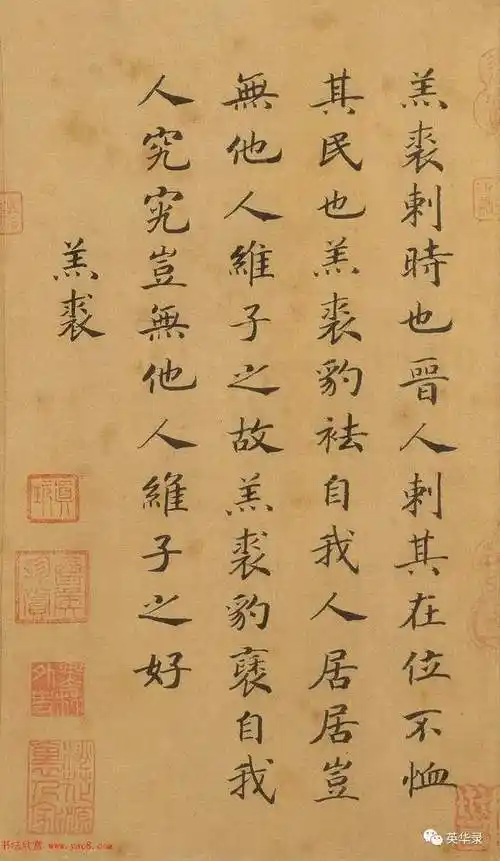 羔裘刺時也晉人刺其在位不恤
其民也羔裘豹袪自我人居居豈
無他人維子之故羔裘豹褎自我
人究究豈無他人維子之好
羔裘
书法欣赏 www.yac8.com
英华录